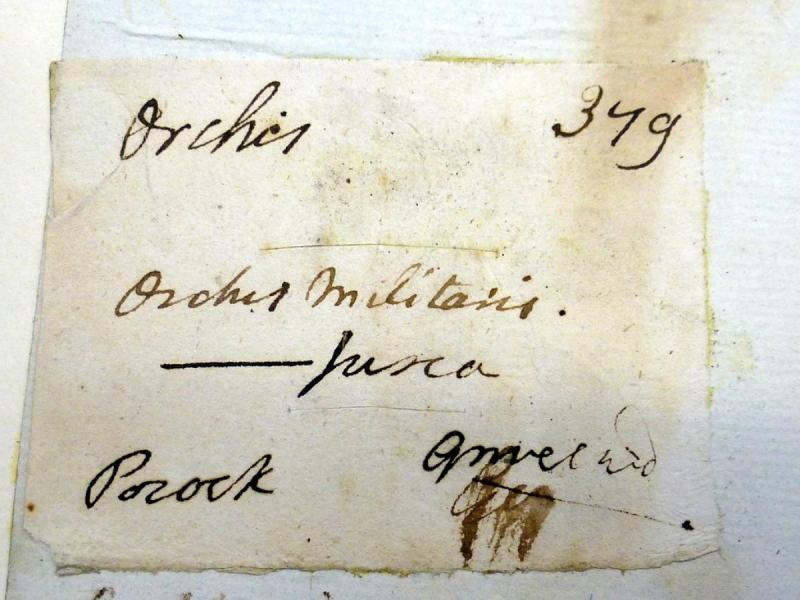 Orchis 379
Orchis Militaris.
— fusca
Pocock Gravesend